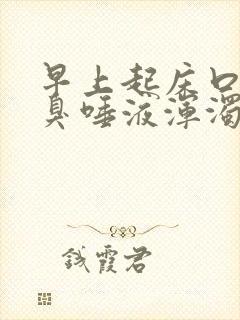 早上起床口
臭唾液浑浊
钱霞君